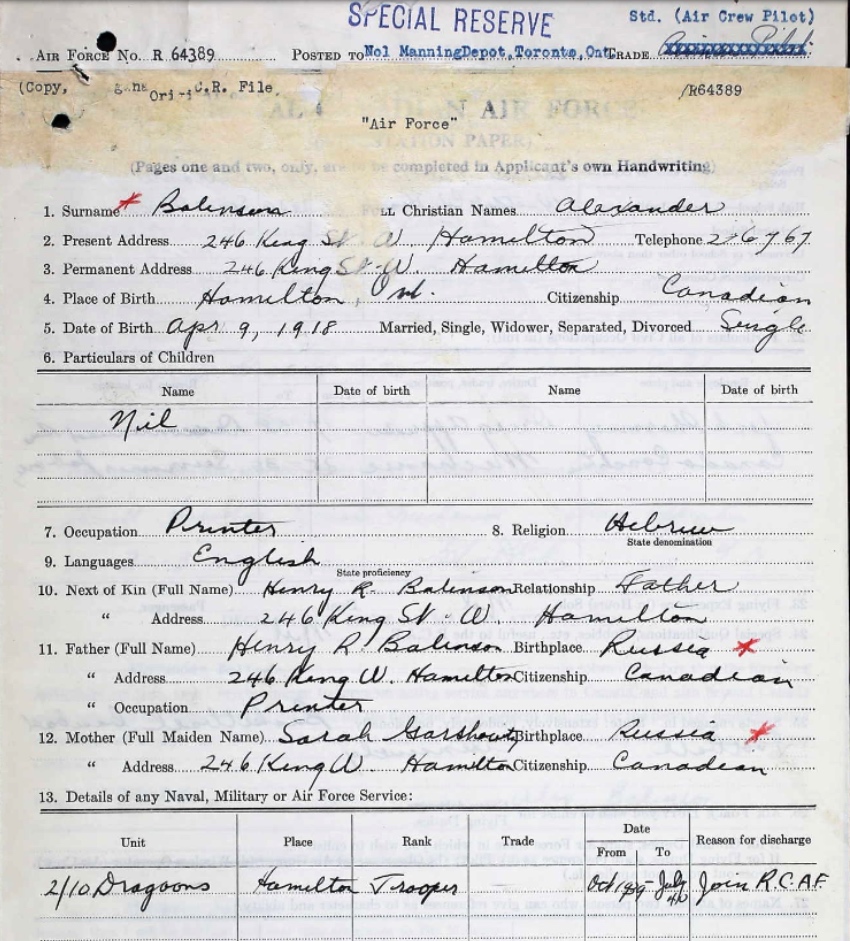 SPECIAL RESERVE
Std. (Air Crew Pilot)
AIR FORCE No. R 64389 POSTED TO No1 ManningDepot, Toronto, Ont. TRADE
(Copy, Ori C.R. File /R64389
"Air Force"
AIR FORCE
(Pages one and two, only, are to be completed in Applicant's own Handwriting)
1. Surname Balinson Christian Names Alexander
2. Present Address 246 King St W. Hamilton Telephone 2-6767
3. Permanent Address 246 King St-W. Hamilton
4. Place of Birth Hamilton, Ont. Citizenship Canadian
5. Date of Birth Apr 9, 1918 Married, Single, Widower, Separated, Divorced Single
6. Particulars of Children
Name Date of birth Name Date of birth
Nil
7. Occupation Printer 8. Religion Hebrew
State denomination
9. Languages English
State proficiency
10. Next of Kin (Full Name) Henry R. Balinson Relationship Father
" Address 246 King St-W. Hamilton
11. Father (Full Name) Henry R. Balinson Birthplace Russia
" Address 246 King W. Hamilton Citizenship Canadian
" Occupation Printer
12. Mother (Full Maiden Name) Sarah Birthplace Russia
" Address 246 King W. Hamilton Citizenship Canadian
13. Details of any Naval, Military or Air Force Service:
Unit Place Rank Trade Date Reason for discharge
From To
2/10 Dragoons Hamilton Trooper — Oct 1939 - July 40 Join R.C.A.F.